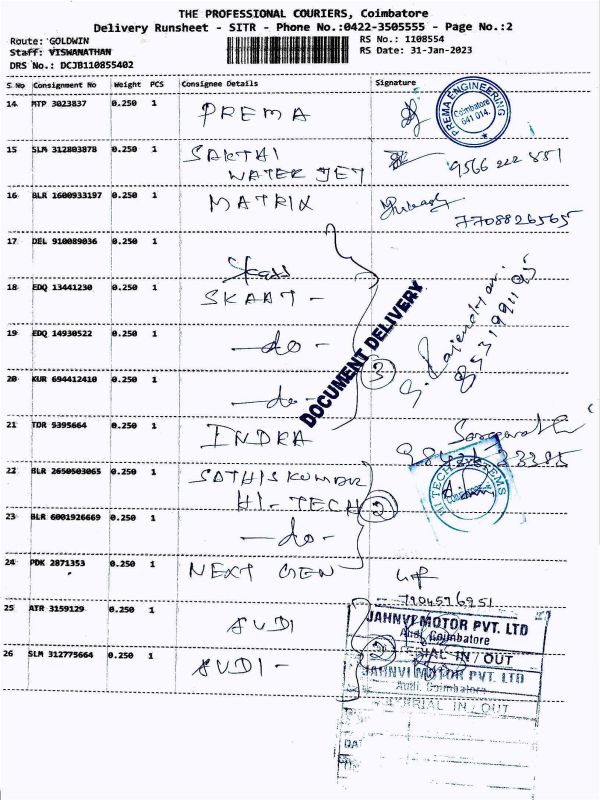 THE PROFESSIONAL COURIERS, Coimbatore
Delivery Runsheet - SITR - Phone No.:0422-3505555 - Page No.:2
Route: GOLDWIN
RS No.: 1108554
Staff: VISWANATHAN
RS Date: 31-Jan-2023
DRS No.: DCJB110855402
S No Consignment No Weight PCS Consignee Details Signature
14 MTP 3023837 0.250 1 PREMA
PREMA ENGINEERING
Coimbatore
641 014.
15 SLM 312803878 0.250 1 SAKTHI
WATER JET 9566 222 551
16 BLR 1600933197 0.250 1 MATRIX
7708826565
17 DEL 910089036 0.250 1
18 EDQ 13441230 0.250 1 SKAAT -
19 EDQ 14930522 0.250 1 -do-
20 KUR 694412410 0.250 1 -do-
DOCUMENT DELIVERY
3
G. Rajendran
21 TDR 5395664 0.250 1 INDRA
22 BLR 2650503065 0.250 1 SATHISKUMAR
HI-TECH
2
HI TECH SYSTEMS
Coimbatore
23 BLR 6001926669 0.250 1 -do-
24 PDK 2871353 0.250 1 NEXT GEN
7904596951
25 ATR 3159129 0.250 1 AUDI
JAHNVI MOTOR PVT. LTD
Audi, Coimbatore
MATERIAL IN / OUT
26 SLM 312775664 0.250 1 AUDI -
2
JAHNVI MOTOR PVT. LTD
Audi, Coimbatore
MATERIAL IN / OUT